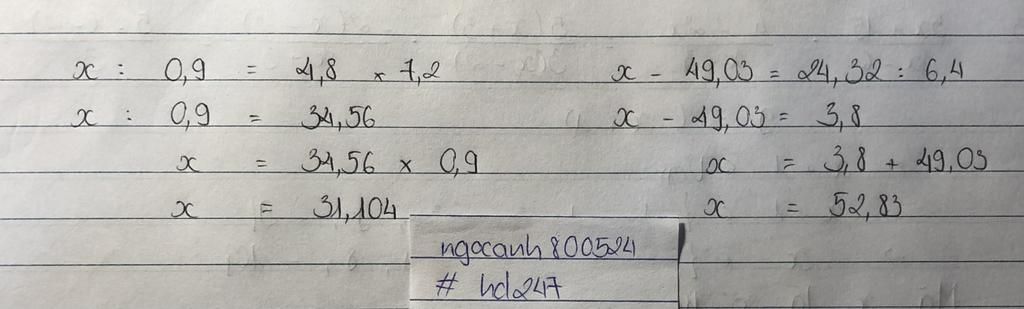 x : 0,9 = 4,8 × 7,2
x : 0,9 = 34,56
x = 34,56 × 0,9
x = 31,104
x - 49,03 = 24,32 : 6,4
x - 49,03 = 3,8
x = 3,8 + 49,03
x = 52,83
ngocanh800524
# hd247